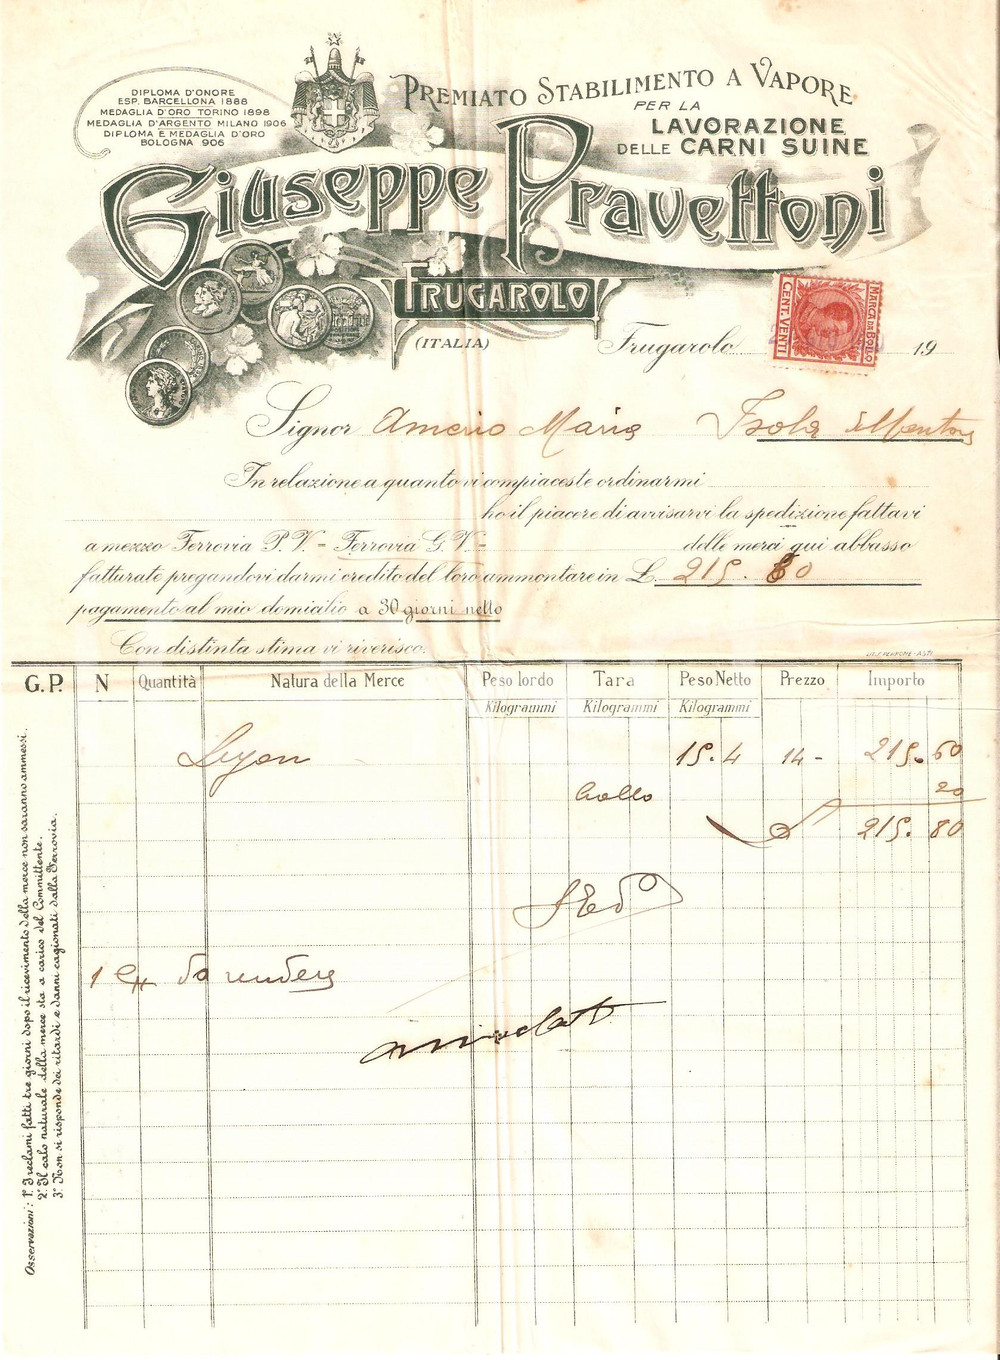 DIPLOMA D'ONORE
ESP. BARCELLONA 1888
MEDAGLIA D'ORO TORINO 1898
MEDAGLIA D'ARGENTO MILANO 1906
DIPLOMA E MEDAGLIA D'ORO
BOLOGNA 906
PREMIATO STABILIMENTO A VAPORE
PER LA
LAVORAZIONE
DELLE CARNI SUINE
Giuseppe Pravettoni
FRUGAROLO
(ITALIA)
MARCA DA BOLLO
CENT. VENTI
Frugarolo 19
Signor Amerio Maria Isola
In relazione a quanto vi compiaceste ordinarmi
ho il piacere di avvisarvi la spedizione fattavi
a mezzo Ferrovia P. V. = Ferrovia G. V. = delle merci qui abbasso
fatturate pregandovi darmi credito del loro ammontare in £. 215. 80
pagamento al mio domicilio a 30 giorni netto
Con distinta stima vi riverisco.
G. P. N Quantità Natura della Merce Peso lordo Tara Peso Netto Prezzo Importo
Kilogrammi Kilogrammi Kilogrammi
15.4 14- 215.60
bollo 20
215.80
1 da vendere
Osservazioni: 1º. I reclami fatti tre giorni dopo il ricevimento della merce non saranno ammessi.
2º. Il calo naturale della merce sta a carico del Committente.
3º. Non si risponde dei ritardi e danni cagionati dalla Ferrovia.